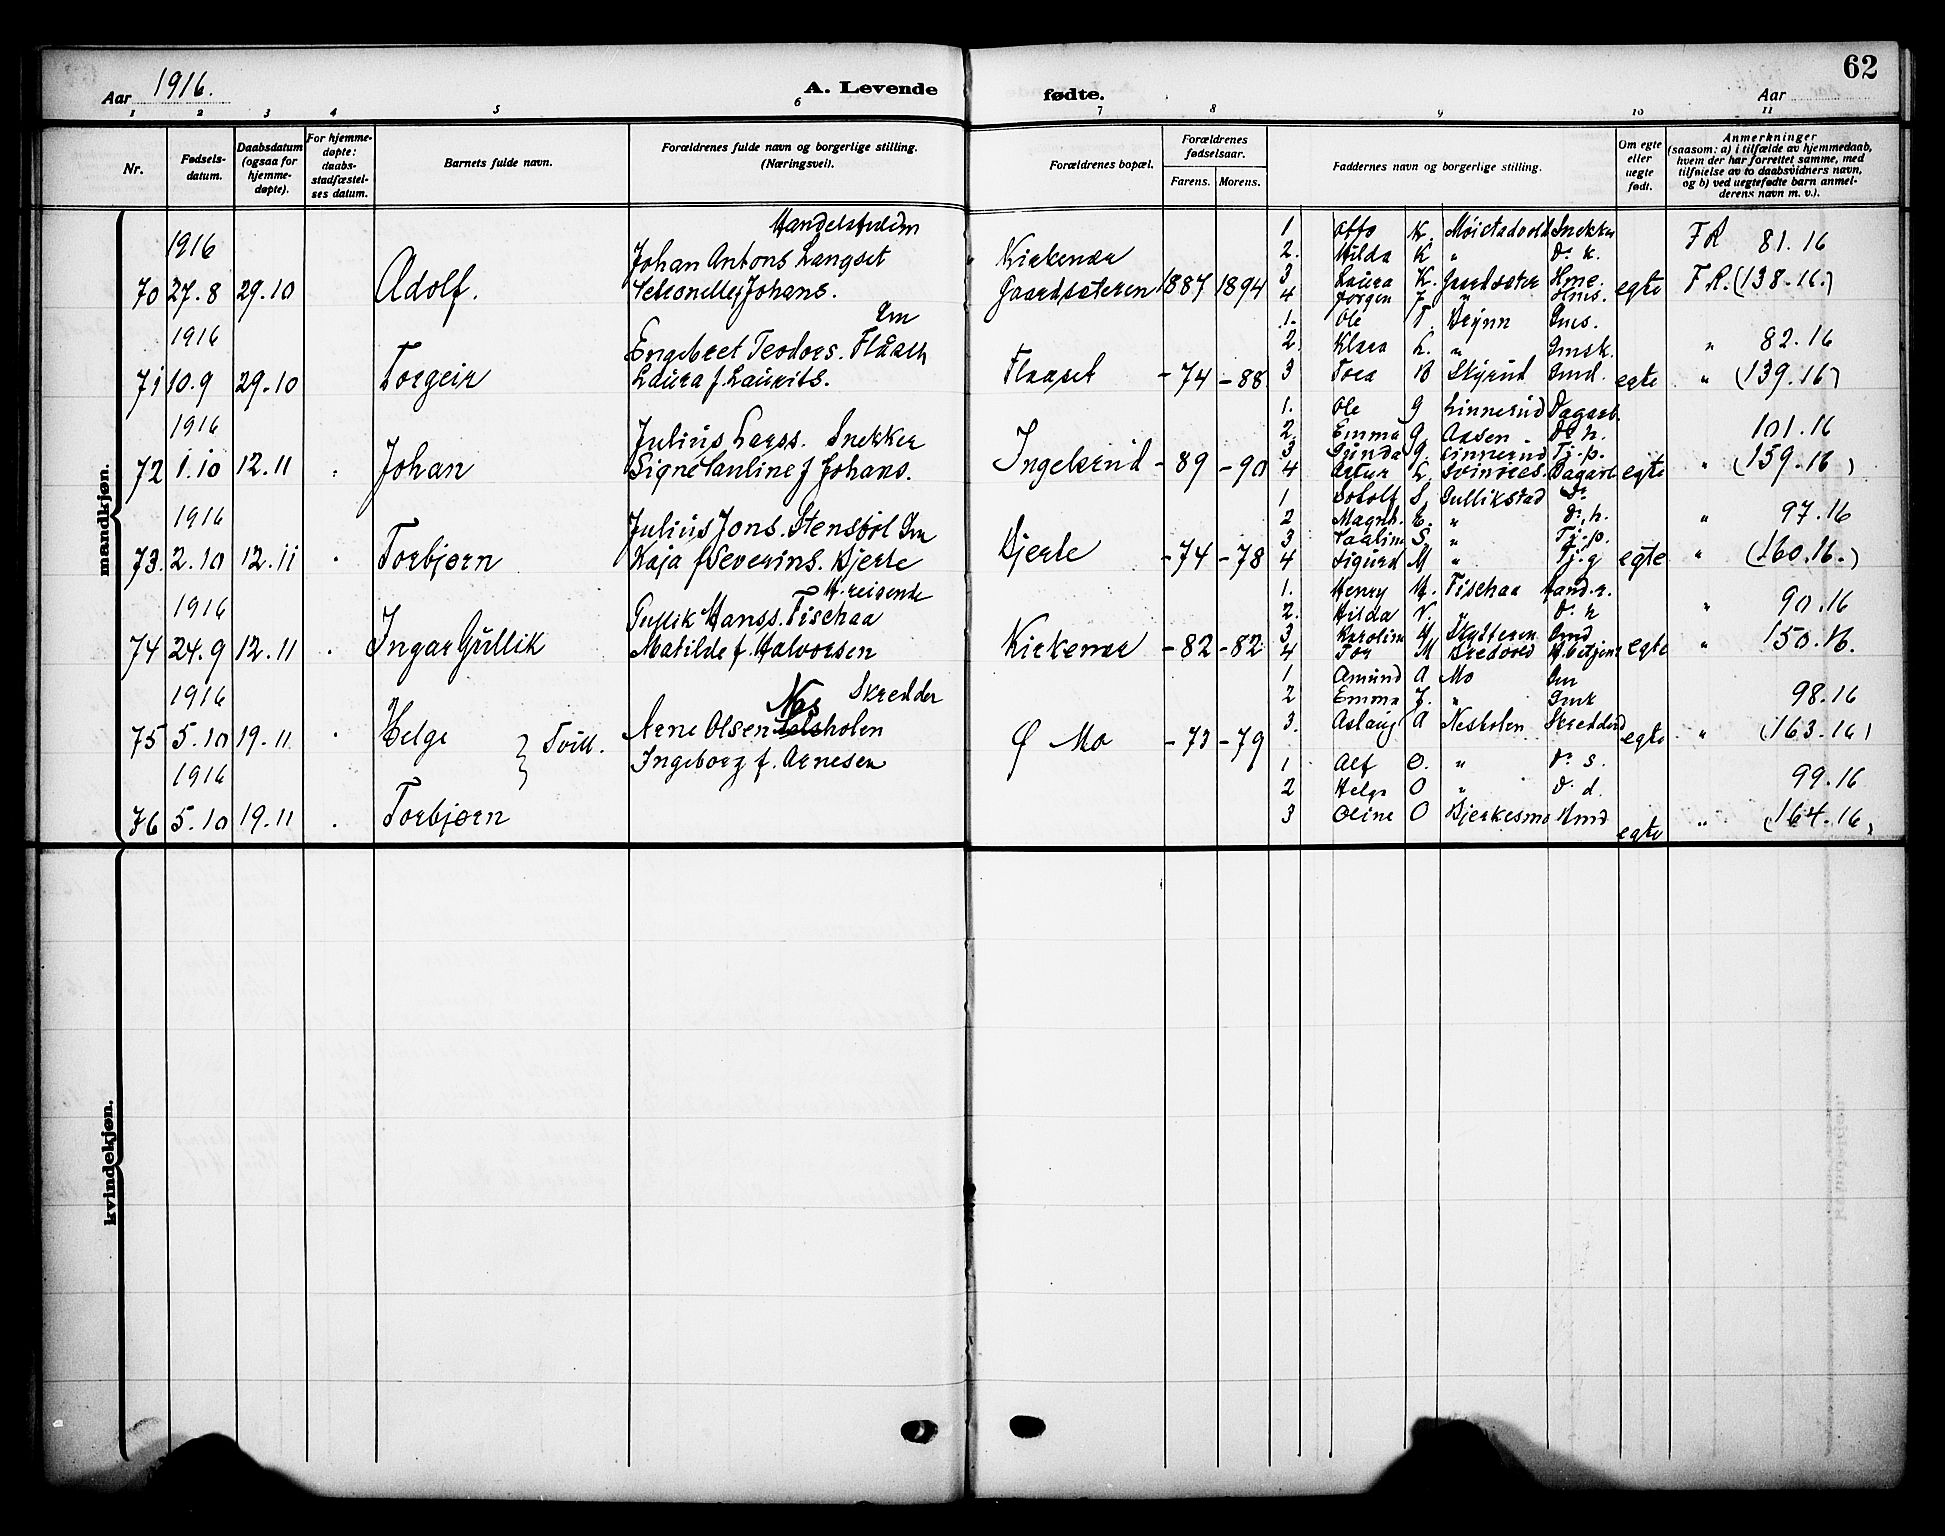 62
Aar 1916. A. Levende fødte. Aar
1 2 3 4 5 6 7 8 9 10 11
Nr. Fødsels-datum. Daabsdatum (ogsaa for hjemme-døpte). For hjemme-døpte: daabs-stadfæstel-ses datum. Barnets fulde navn. Forældrenes fulde navn og borgerlige stilling. (Næringsvei). Forældrenes bopæl. Forældrenes fødselsaar. Farens. Morens. Faddernes navn og borgerlige stilling. Om egte eller uegte født. Anmerkninger (saasom: a) i tilfælde av hjemmedaab, hvem der har forrettet samme, med tilføielse av to daabsvidners navn, og b) ved uegtefødte barn anmel-derens navn m. v.).
mandkjøn.
1916 Johan Antons Langset Kirkenær 1 Otto K. Snekker FR 81.16
2. Hilda K " Do k.
70 27.8 29.10 Adolf. Johans. Gaardsæteren 1887 1894 3 Laura K. Gaardsæter Hme. egte F.R. (138.16.)
4 Jørgen J " Hus.
1916 Gm 1. Ole T. Brynn Gms.
Engebret Teodors. Flaaset 2. Klara L. " Gmsk. " 82.16
71 10.9 29.10 Torgeir Laura f. Laurits. Flaaset -74 -88 3 Tora B Skyrud Gmd. egte " (139.16)
1916 Julius Larss. Snekker 1. Ole G Linnerud Dagarb.
2. Emma G. Aasen Do h. 101.16
72 1.10 12.11 Johan Signe Pauline f Johans. Ingelsrud -89 -90 3 Gunda G. Linnerud Tj.p. egte " (159.16)
4 Artur L. Dagarb
1916 Julius Jons. Stensbøl Gm 1 S. Gullikstad Do
2 Magnh. E. " Do. h. " 97.16
73. 2.10 12.11 Torbjørn Kaja f Severins. Bjerke Bjerke -74 -78 3 Paaline S. " Tj.p. egte " (160.16.)
4 Sigurd M " Tj.g
1916 H. reisende 1. Henry H. Tischaa Hand.r.
Gullik Hanss. Tischaa 2. Hilda N. " Do h " 90.16
74 24.9 12.11 Ingar Gullik Matilde f. Halvorsen Kirkenær -82 -82 3 Karoline H Skysteren Gmd egte " 150.16.
4 Tor M Bredvold
1916 Skredder 1 Amund A Mo Gm
Nes 2 Emma J. " Gmk 98.16
75 5.10 19.11 Helge Tvill. Arne Olsen holen Ø Mo -73 -79 3. Aslaug A Nesholen Skredderd egte " (163.16)
1916 Ingeborg f. Arnesen 1 Alf O. " Do s.
2 Helga O " Do d. 99.16
76 5.10 19.11 Torbjørn 3 Oline O Bjerkesmo Hmd egte " (164.16)
kvindekjøn.